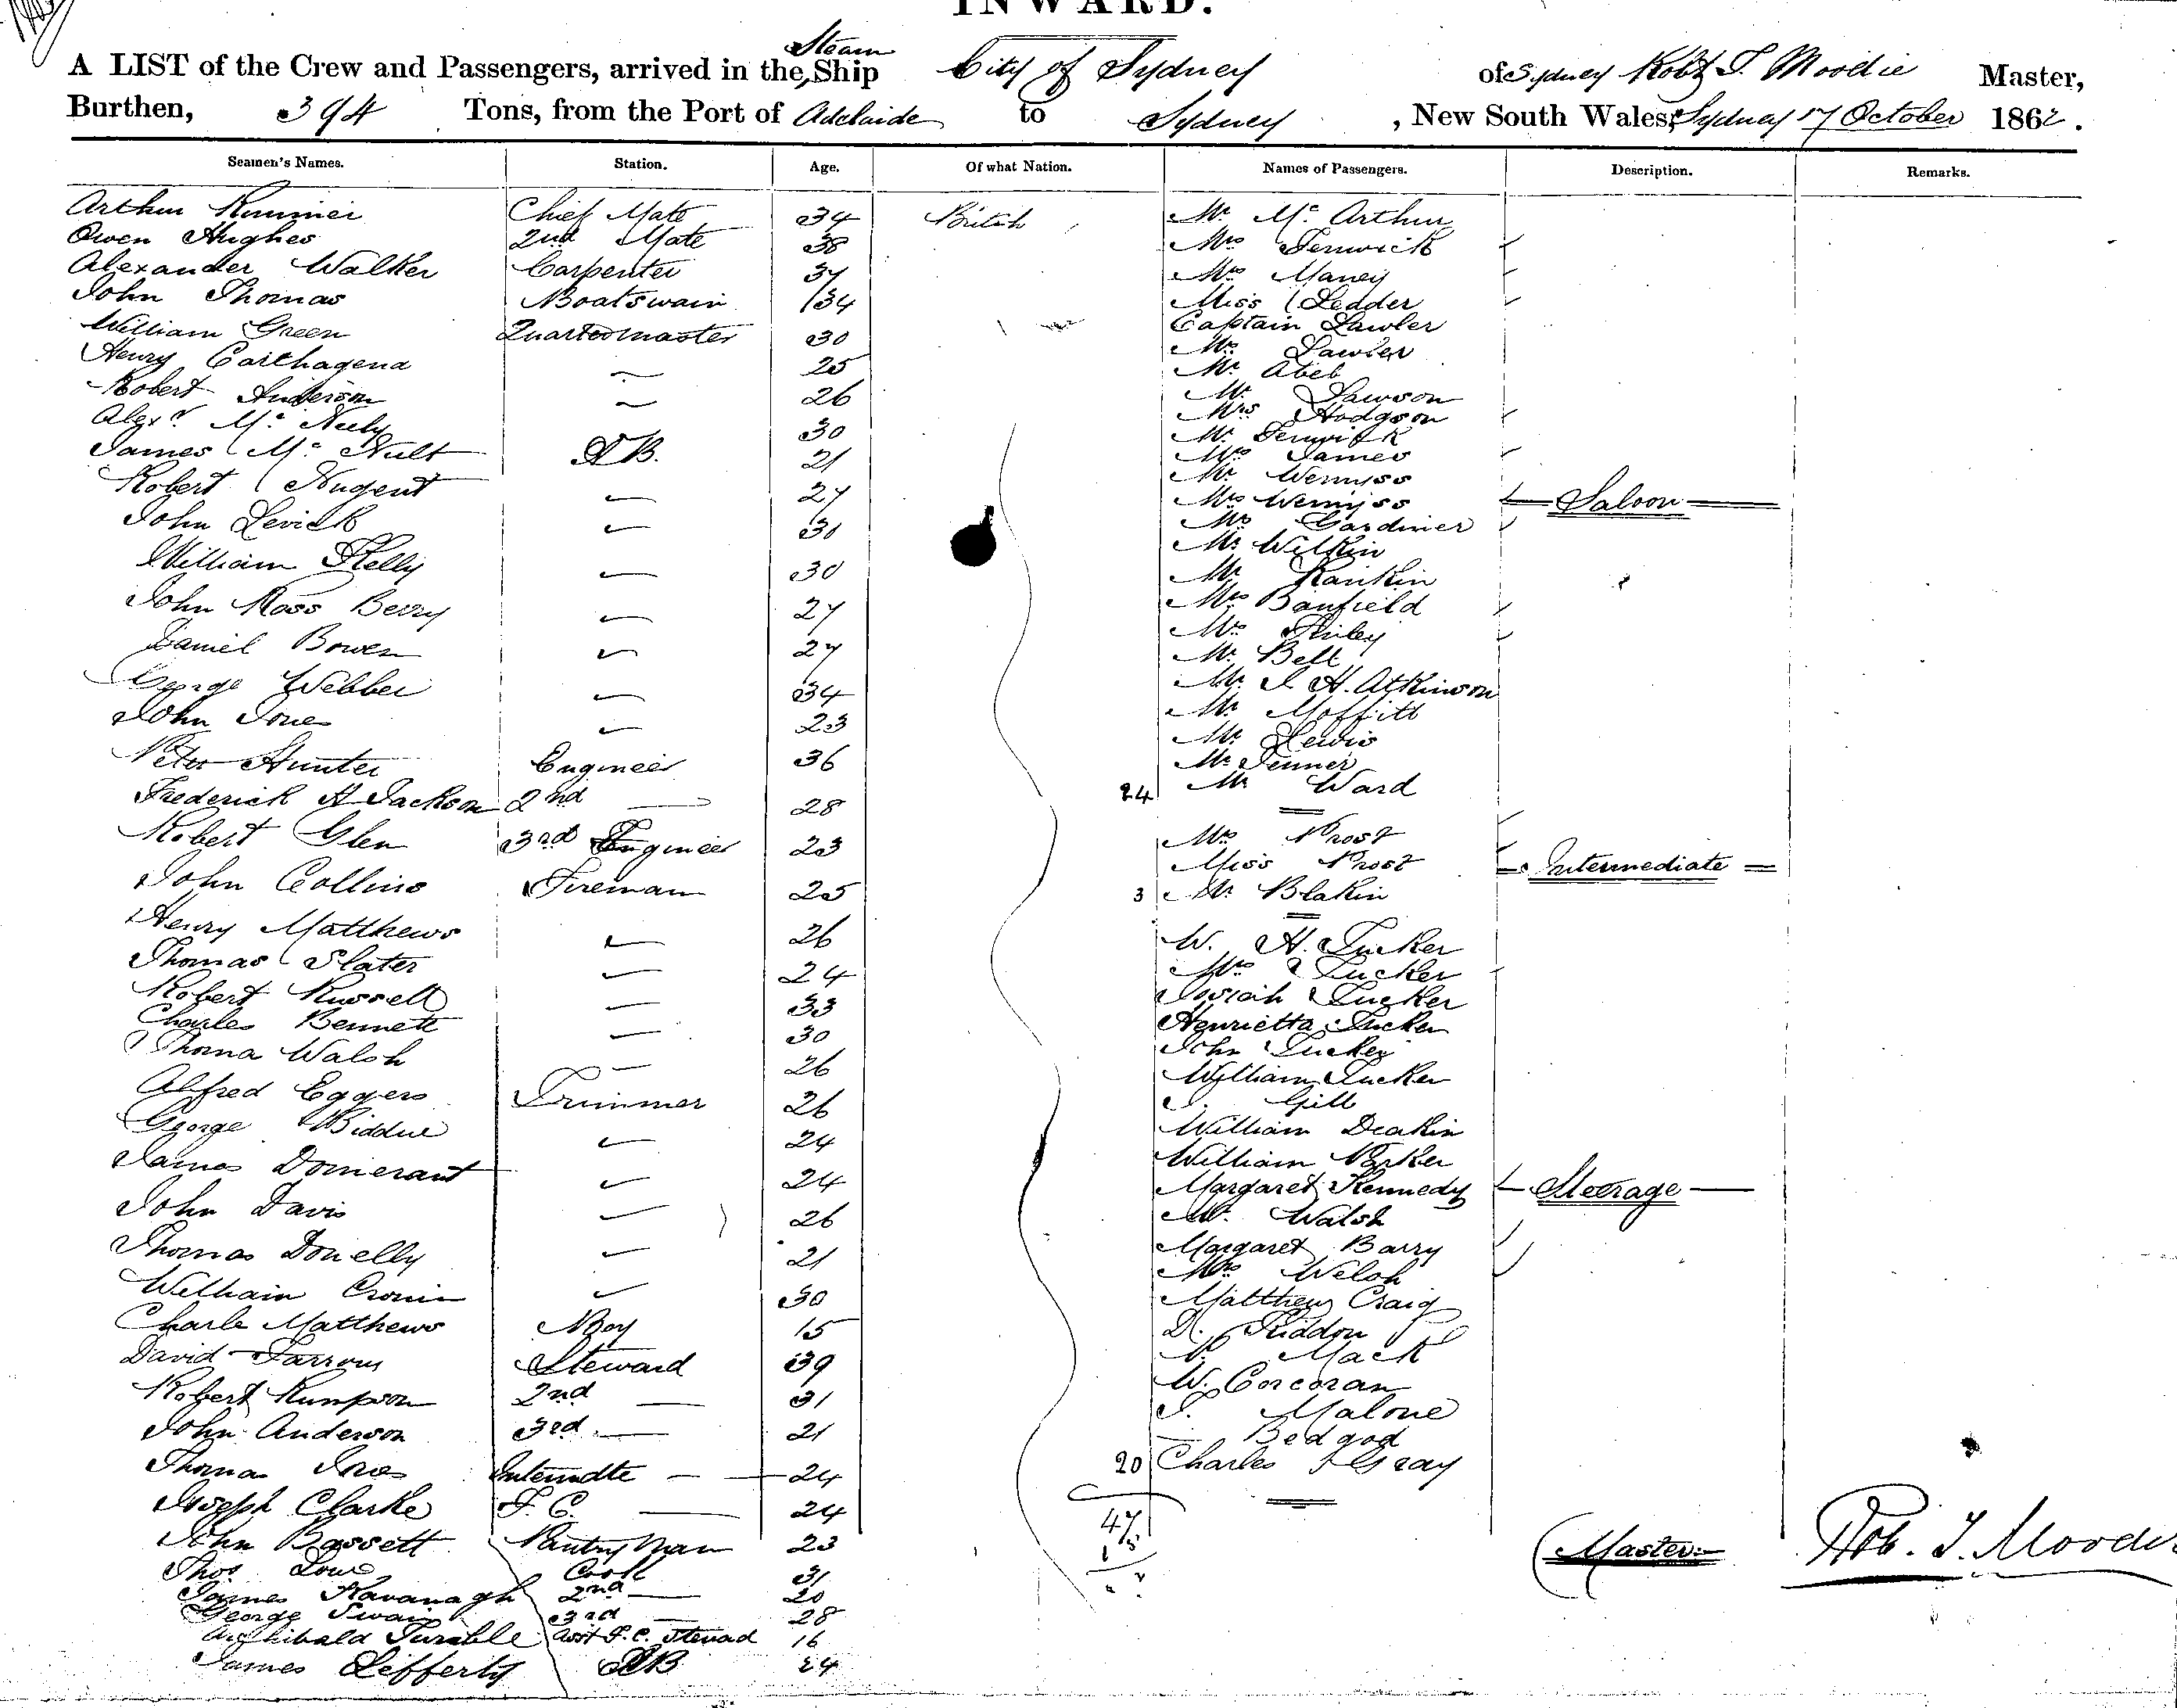 INWARD.
A LIST of the Crew and Passengers, arrived in the Steam Ship City of Sydney of Sydney Robt T. Moodie Master,
Burthen, 394 Tons, from the Port of Adelaide to Sydney, New South Wales, Sydney 17 October 1862.
Seamen's Names. Station. Age. Of what Nation. Names of Passengers. Description. Remarks.
Arthur Chief Mate 34 British
Owen Hughes 2nd Mate 38
Alexander Walker Carpenter 37
John Thomas Boatswain 34
William Green Quartermaster 30
Henry Carthagena 25
Robert Anderson 26
Alexr. Mc Neely 30
James Mc Nult AB. 21
Robert Nugent 27
John Levick 30
William Kelly 30
John Ross Berry 27
Daniel Bowen 27
George Webber 34
John Jones 23
Peter Hunter Engineer 36
Frederick A Jackson 2nd 28
Robert Glen 3rd Engineer 23
John Collins Fireman 25
Henry Matthews 26
Thomas Slater 24
Robert Russell 33
Charles Bennett 30
Thoma Walsh 26
Alfred Eggers Trimmer 26
George 24
James 24
John Davis 26
Thomas Donelly 21
William Cronin 30
Charle Matthews Boy 15
David Farrow Steward 39
Robert 2nd 31
John Anderson 3rd 21
Thomas 24
Joseph Clarke F. C. 24
John Bassett Pantry Man 23
Thos. Cook 31
James Kavanagh 2nd 20
George Swain 3rd 28
Archibald Asst F. C. Steward 16
James Lifferty AB 24
Mr. Mc Arthur
Mrs Fenwick
Mrs Maney
Miss Ledder
Captain Lawler
Mr. Lawler
Mr. Abel
Mr. Lawson
Mrs Hodgson
Mr. Fenwick
Mrs James
Mr Wemyss
Mrs Wemyss Saloon
Mrs Gardiner
Mr Wilkin
Mr. Rankin
Mrs Banfield
Mrs
Mr. Bell
Mr. J H. Atkinson
Mr Moffitt
Mr. Lewis
Mr Jenner
24 Mr Ward
Mrs Prost
Miss Prost Intermediate
3 Mr. Blakin
W. H. Tucker
Mrs Tucker
Josiah Tucker
Henrietta Tucker
John Tucker
William Tucker
Gill
William Deakin
William Parker
Margaret Kennedy Steerage
Walsh
Margaret Barry
Mrs Welsh
Matthew Craig
Mack
W. Corcoran
Malone
Bedgod
20 Charles Gray
47
Master Rob. T. Moodie